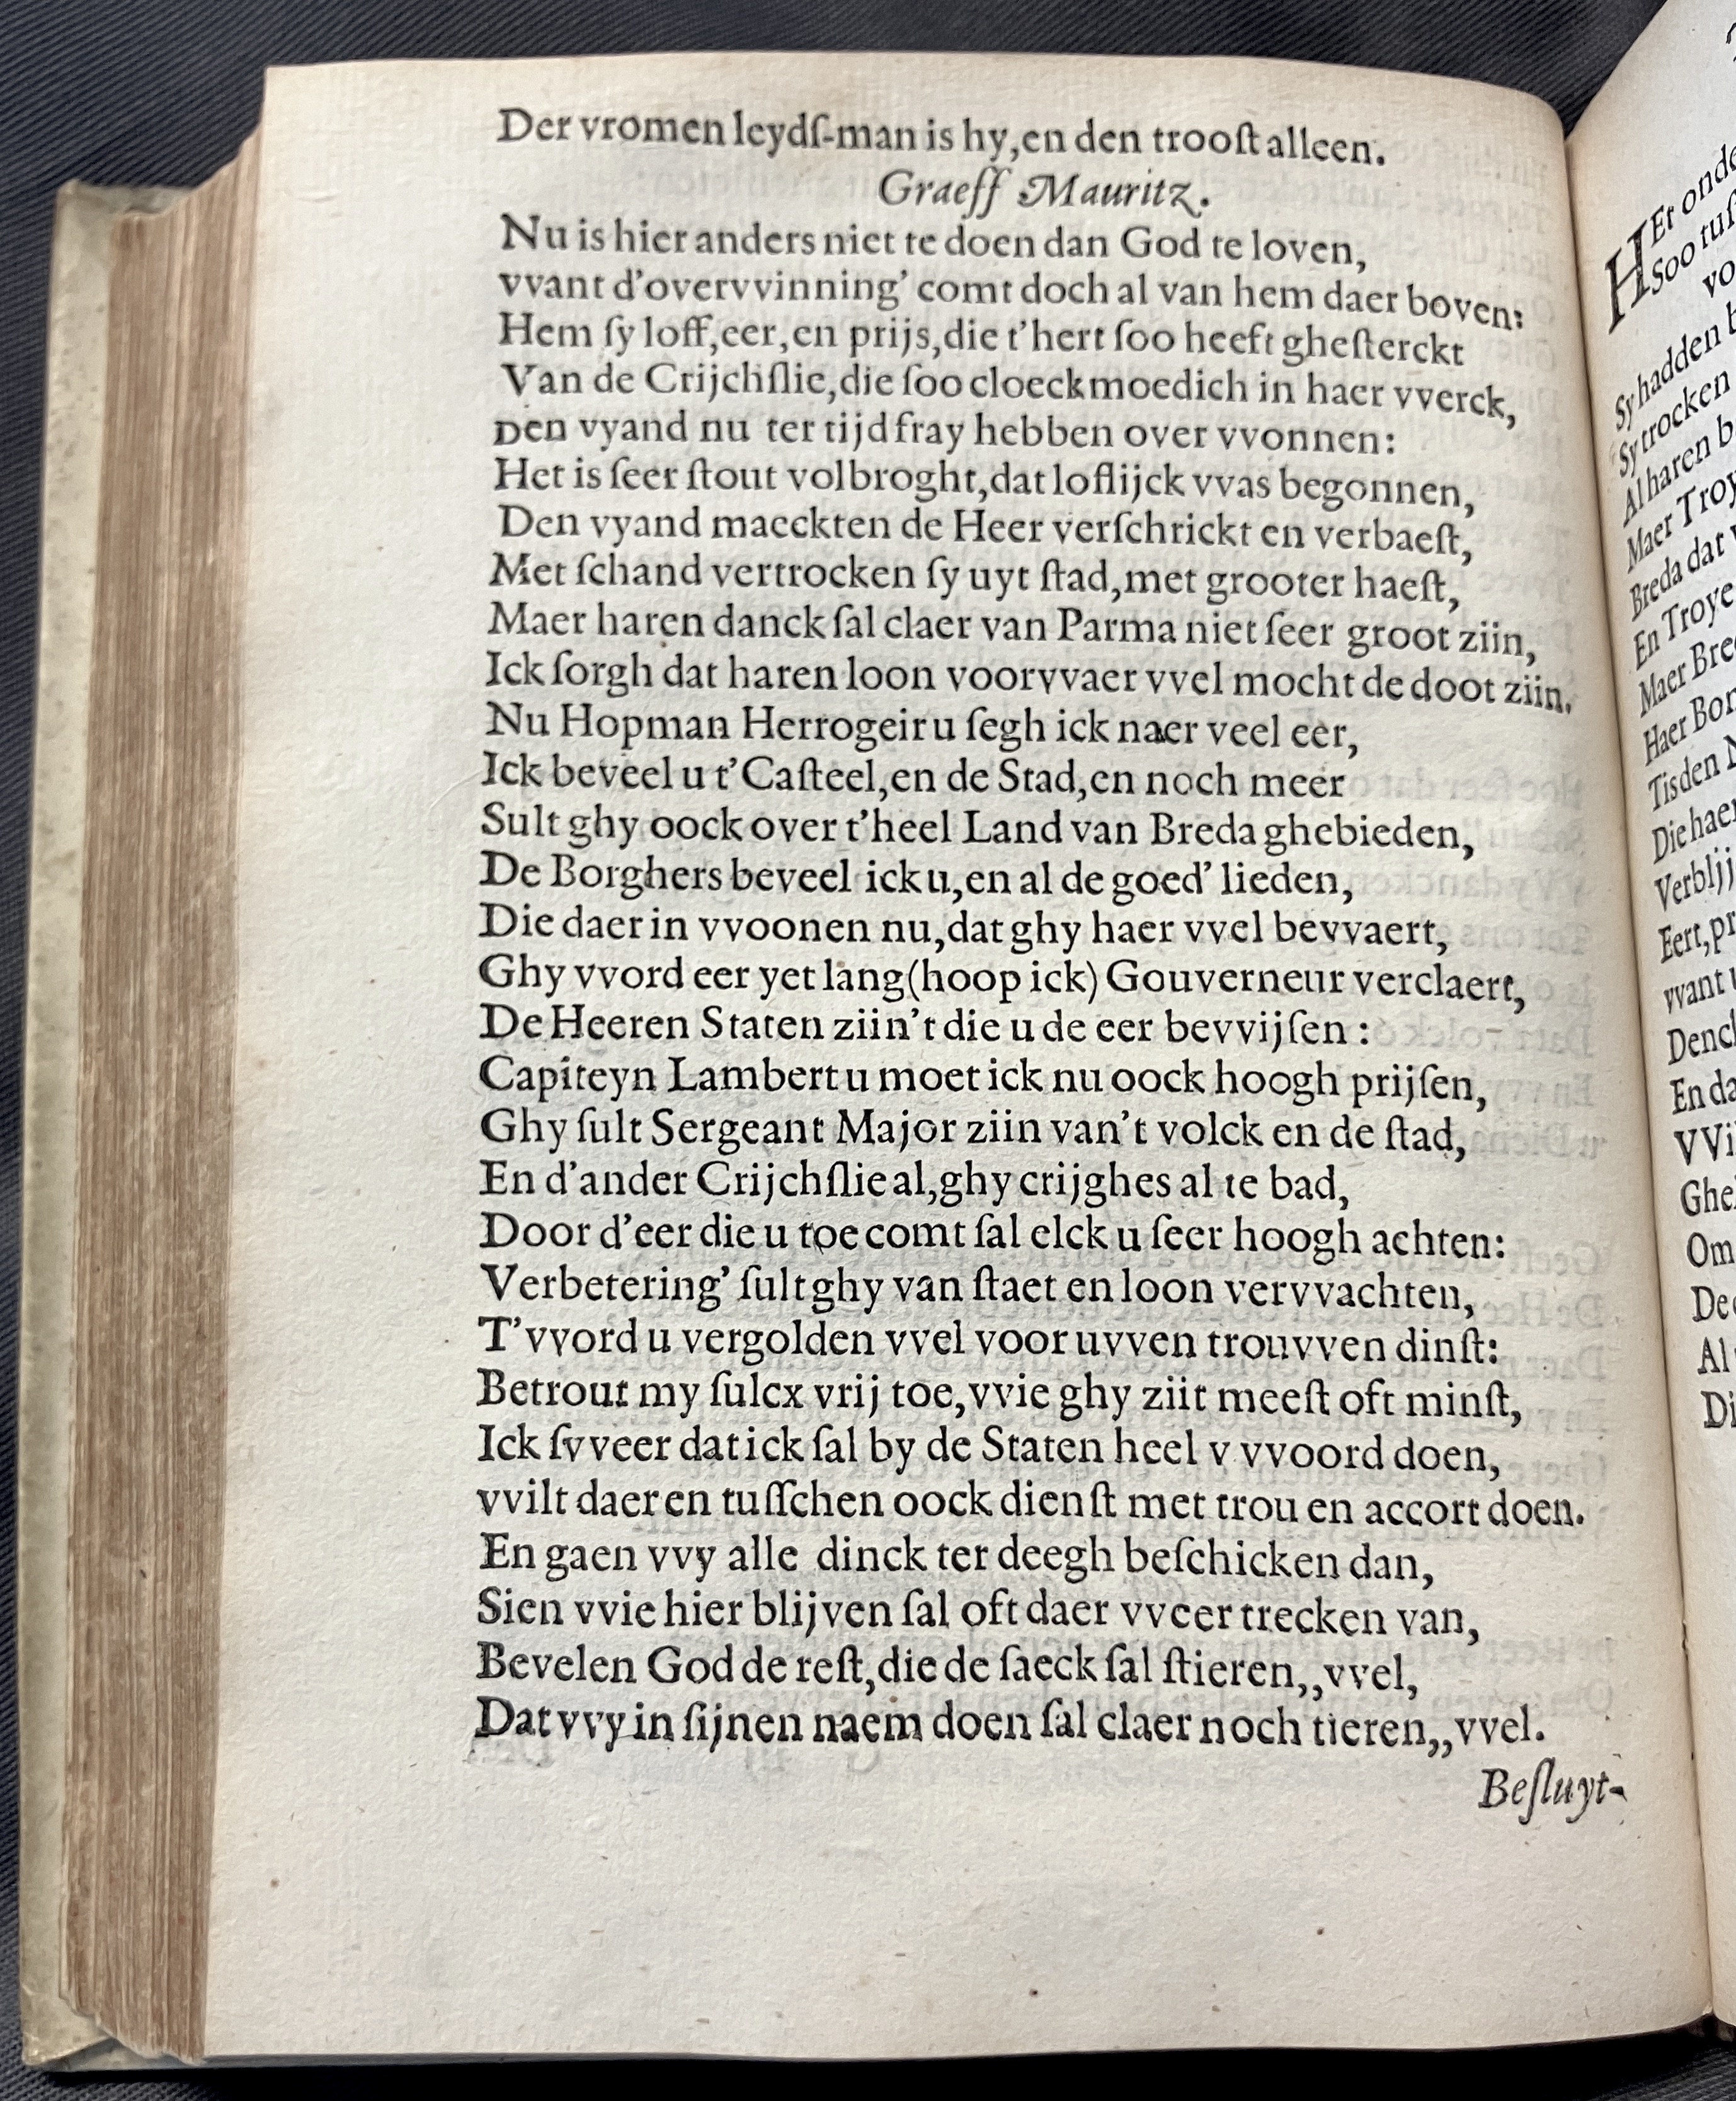 Der vromen leydſ-man is hy,en den trooſt alleen.
Graeff Mauritz.
Nu is hier anders niet te doen dan God te loven,
vvant d'overvvinning' comt doch al van hem daer boven:
Hem ſy loff,eer,en prijs,die t'hert ſoo heeft gheſterckt
Van de Crijchſlie,die ſoo cloeckmoedich in haer vverck,
Den vyand nu ter tijd fray hebben over vvonnen:
Het is ſeer ſtout volbroght,dat loflijck vvas begonnen,
Den vyand maeckten de Heer verſchrickt en verbaeſt,
Met ſchand vertrocken ſy uyt ſtad,met grooter haeſt,
Maer haren danck ſal claer van Parma niet ſeer groot ziin,
Ick ſorgh dat haren loon voorvvaer vvel mocht de doot ziin.
Nu Hopman Herrogeir u ſegh ick naer veel eer,
Ick beveel u t'Caſteel,en de Stad,en noch meer
Sult ghy oock over t'heel Land van Breda ghebieden,
De Borghers beveel ick u,en al de goed' lieden,
Die daer in vvoonen nu,dat ghy haer vvel bevvaert,
Ghy vvord eer yet lang(hoop ick) Gouverneur verclaert,
De Heeren Staten ziin't die u de eer bevvijſen :
Capiteyn Lambert u moet ick nu oock hoogh prijſen,
Ghy ſult Sergeant Major ziin van't volck en de ſtad,
En d'ander Crijchſlie al,ghy crijghes al te bad,
Door d'eer die u toe comt ſal elck u ſeer hoogh achten:
Verbetering' ſult ghy van ſtaet en loon vervvachten,
T'vvord u vergolden vvel voor uvven trouvven dinſt:
Betrout my ſulcx vrij toe,vvie ghy ziit meeſt oft minſt,
Ick ſvveer dat ick ſal by de Staten heel v vvoord doen,
vvilt daer en tuſſchen oock dienſt met trou en accort doen.
En gaen vvy alle dinck ter deegh beſchicken dan,
Sien vvie hier blijven ſal oft daer vveer trecken van,
Bevelen God de reſt,die de ſaeck ſal ſtieren,,vvel,
Dat vvy in ſijnen naem doen ſal claer noch tieren,,vvel.
Beſluyt-
HEt onde
Soo tuſ
vo
Sy hadden b
Sy trocken
Al haren b
Maer Troy
Breda dat v
En Troye
Maer Bre
Haer Bor
Tis den N
Die haer
Verblij
Eert,pr
vvant u
Denck
En da
VVi
Ghe
Om
De
Al
Di